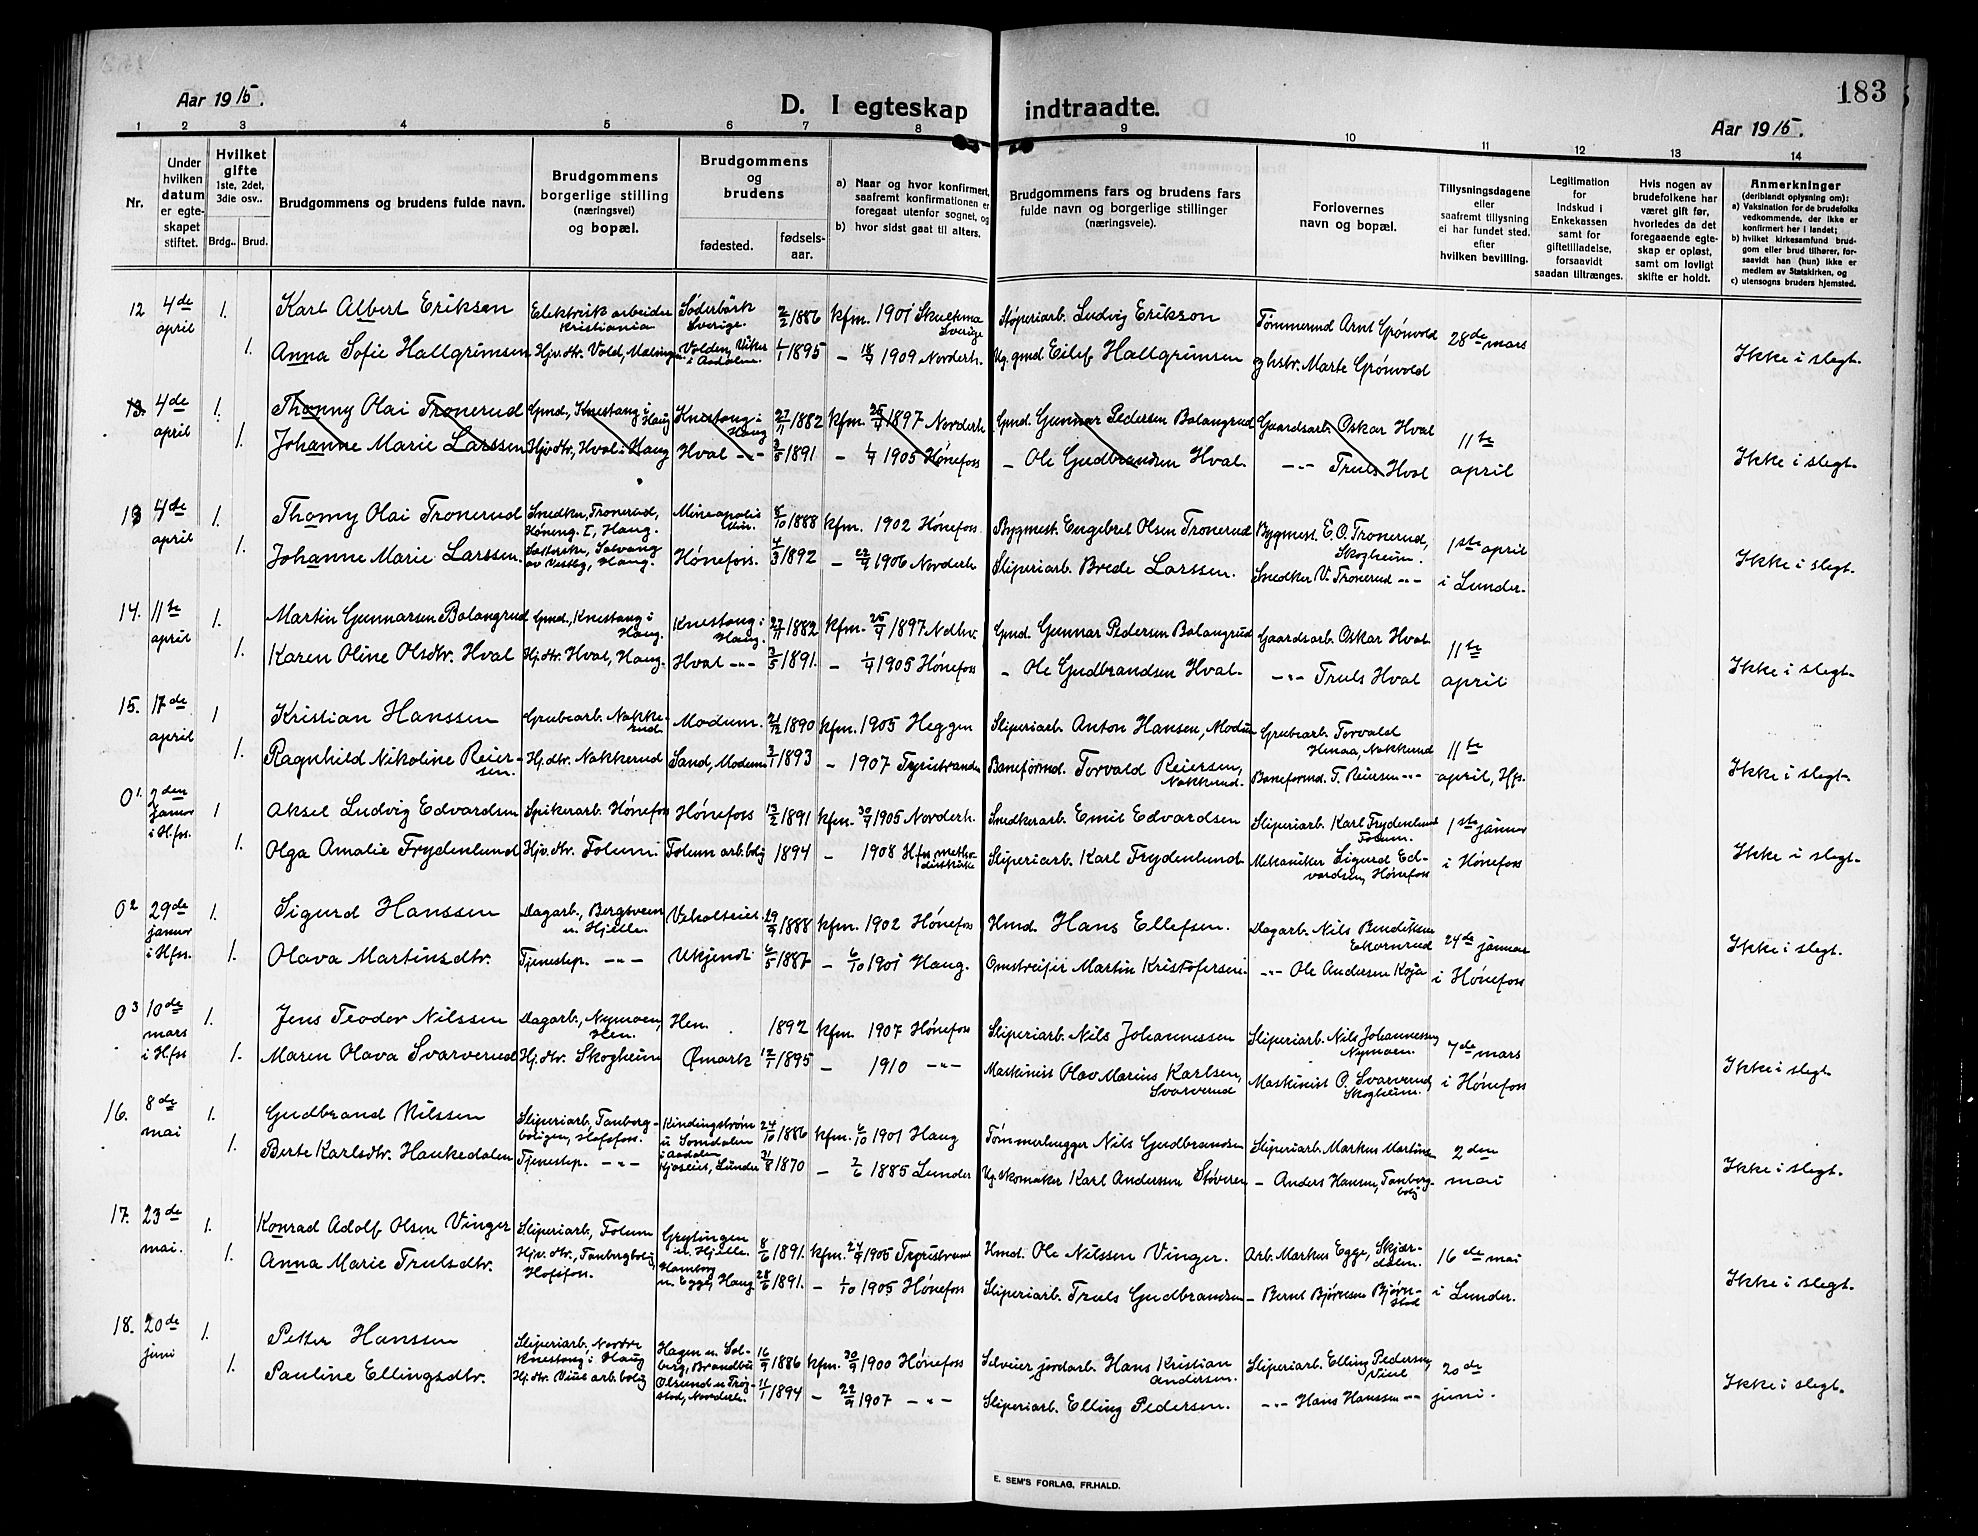 183
Aar 1915.
D. I egteskap indtraadte.
Aar 1915.
1 2 3 4 5 6 7 8 9 10 11 12 13 14
Nr.
Under hvilken datum er egteskapet stiftet.
Hvilket gifte 1ste, 2det, 3die osv..
Brdg.. Brud.
Brudgommens og brudens fulde navn.
Brudgommens borgerlige stilling (næringsvei) og bopæl.
Brudgommens og brudens
fødested.
fødselsaar.
a) Naar og hvor konfirmert, saafremt konfirmationen er foregaat utenfor sognet, og
b) hvor sidst gaat til alters.
Brudgommens fars og brudens fars fulde navn og borgerlige stillinger (næringsveie).
Forlovernes navn og bopæl.
Tillysningsdagene eller saafremt tillysning ei har fundet sted, efter hvilken bevilling.
Legitimation for Indskud i Enkekassen samt for giftetilladelse, forsaavidt saadan tiltrænges.
Hvis nogen av brudefolkene har været gift før, hvorledes da det foregaaende egteskap er opløst, samt om lovligt skifte er holdt.
Anmerkninger (deriblandt oplysning om):
a) Vaksination for de brudefolks vedkommende, der ikke er konfirmert her i landet;
b) hvilket kirkesamfund brudgom eller brud tilhører, forsaavidt han (hun) ikke er medlem av Statskirken, og
c) utensogns bruders hjemsted.
12 4de april 1. Karl Albert Eriksen Elektrisk arbeider Kristiania Söderbärk Sverige. 2/2 1886 kfm. 1901 Sverige Støperiarb. Ludvig Erikson Tømmerund Arnt Grønvold 28de mars
1. Anna Sofie Hallgrimsen Hjv. dtr. Vold, Valden, Viker i Aadalen 1/1 1895 – 18/7 1909 Norderh. Ug. gmd Eilef Hallgrimsen og hstr. Marte Grønvold Ikke i slegt.
13. 4de april 1. Thomy Olai Tronerud Gmd, Knestang i Haug Knestang i Haug 27/11 1882 kfm. 25/9 1897 Norderh. Gmd. Gunnar Pedersen Bolangrud Gaardsarb. Oskar Hval 11te april
1. Johanne Marie Larssen Hjv. dtr., Hval i Haug Hval –"– 3/5 1891 – 1/9 1905 Hønefoss – Ole Gudbrandsen Hval. –"– Truls Hval Ikke i slegt.
13 4de april 1. Thomy Olai Tronerud Snedker, Tronerud, Høneng. I, Haug. Mineapolis Min. 8/10 1888 kfm. 1902 Hønefoss. Bygmest. Engebret Olsen Tronerud Bygmest. E. O. Tronerud, Skogheim. 1ste april
1. Johanne Marie Larssen. Solvang av Vestby, Haug. Hønefoss. 4/3 1892 – 23/9 1906 Norderh. Sliperiarb. Brede Larssen. Snedker V. Tronerud –"– i Lunder. Ikke i slegt.
14. 11te april 1. Martin Gunnarsen Bolangrud Gmd., Knestang i Haug. Knestang i Haug. 27/11 1882 kfm. 25/9 1897 Ndhv. Gmd. Gunnar Pedersen Bolangrud Gaardsarb. Oskar Hval 11te april
1. Karen Oline Olsdtr. Hval Hj. dtr. Hval, Haug. Hval –"– 3/5 1891. – 1/9 1905 Hønefoss – Ole Gudbrandsen Hval. –"– Truls Hval Ikke i slegt.
15. 17de april 1 Kristian Hanssen Grubearb. Nakkerud. Modum. 21/12 1890 kfm. 1905 Heggen Sliperiarb. Anton Hansen, Modum Grubearb. Torvald Nakkerud 11te april, Hfs.
1. Ragnhild Nikoline Reiersen. Hj. dtr. Nakkerud Sand, Modum 3/1 1893 – 1907 Tyristranden Baneformd. Torvald Reiersen, Nakkerud. Baneformd. T. Reiersen –"– Ikke i slegt.
01. 2den januar i Hfss. 1 Aksel Ludvig Edvardsen Spikerarb. Hønefoss Hønefoss 13/2 1891 kfm. 30/9 1905 Norderh. Snedkerarb. Emil Edvardsen Sliperiarb. Karl Frydenlund Folum. 1ste januar
1. Olga Amalie Frydenlund Hjv. dtr. Folum. Folum arb. bolig 1894 – 1908 Hfs Sliperiarb. Karl Frydenlund. Mekaniker Sigurd Edvardsen, Hønefoss i Hønefoss Ikke i slegt.
02 29de januar i Hfss. 1. Sigurd Hanssen Dagarb., u. Hjelle. 29/9 1888 kfm. 1902 Hønefoss Hmd. Hans Ellefsen. Dagarb. Nils Bendiksen Ekornrud 24de januar
1. Olava Martinsdtr. Tjenestep. –"– Ukjendt. 6/5 1887 – 6/10 1901 Haug. Omstreifer Martin Kristofersen. –"– Ole Andersen Koja i Hønefoss Ikke i slegt.
03 10de mars i Hfss 1. Jens Teodor Nilssen Dagarb., Nymoen, Hen. Hen. 1892 kfm. 1907 Hønefoss Sliperiarb. Nils Johannessen Sliperiarb. Nils Johannessen Nymoen. 7de mars
1. Maren Olava Svarverud Hj. dtr. Skogheim Ømark 12/1 1895 – 1910 –"– Maskinist Olav Marius Karlsen, Svarverud Maskinist O. Svarverud, Skogheim. i Hønefoss Ikke i slegt.
16. 8de mai 1. Gudbrand Nilssen Sliperiarb. Tanbergboligen, Hofsfoss. Kindingstrøm u Somdalen i Aadalen 24/10 1886 kfm. 6/10 1901 Haug Tømmerhugger Nils Gudbrandsen Sliperiarb. Markus Martinsen 2den
1. Berte Karlsdtr. Haukedalen Tjenestep. –"– Lunder 31/8 1870 – 7/6 1885 Lunder Ug. skomaker Karl Andersen Støveren – Anders Hansen, Tanberg bolig mai Ikke i slegt.
17. 23de mai. 1. Konrad Adolf Olsen Vinger Sliperiarb., Folum Grytingen u. Hjelle. 8/6 1891. kfm. 24/9 1905 Tyristrand Hmd. Ole Nilssen Vinger. Arb. Markus Egge, Skjærdalen. 16de mai
1. Anna Marie Trulsdtr. Hjv. dtr., Tanbergbolig, Hofsfoss. u. Egge, Haug 28/6 1891. – 1/10 1905 Hønefoss Sliperiarb. Truls Gudbrandsen – Bernt Bjørnsen Bjørnstad i Lunder. Ikke i slegt.
18. 20de juni 1. Petter Hanssen Sliperiarb., Nordre Knestang i Haug Hagen u. Solberg, Brandbu 16/9 1886 kfm. 30/9 1900 Hønefoss Selveier jordarb. Hans Kristian Andersen. Sliperiarb. Elling Pedersen, Viul 20de
1. Pauline Ellingsdtr. Hj. dtr. Viul arb. bolig Norderh. 11/1 1894 – 22/9 1907 –"– Sliperiarb. Elling Pedersen. –"– Hans Hanssen –"– juni. Ikke i slegt.
E. SEM'S FORLAG, FR.HALD.